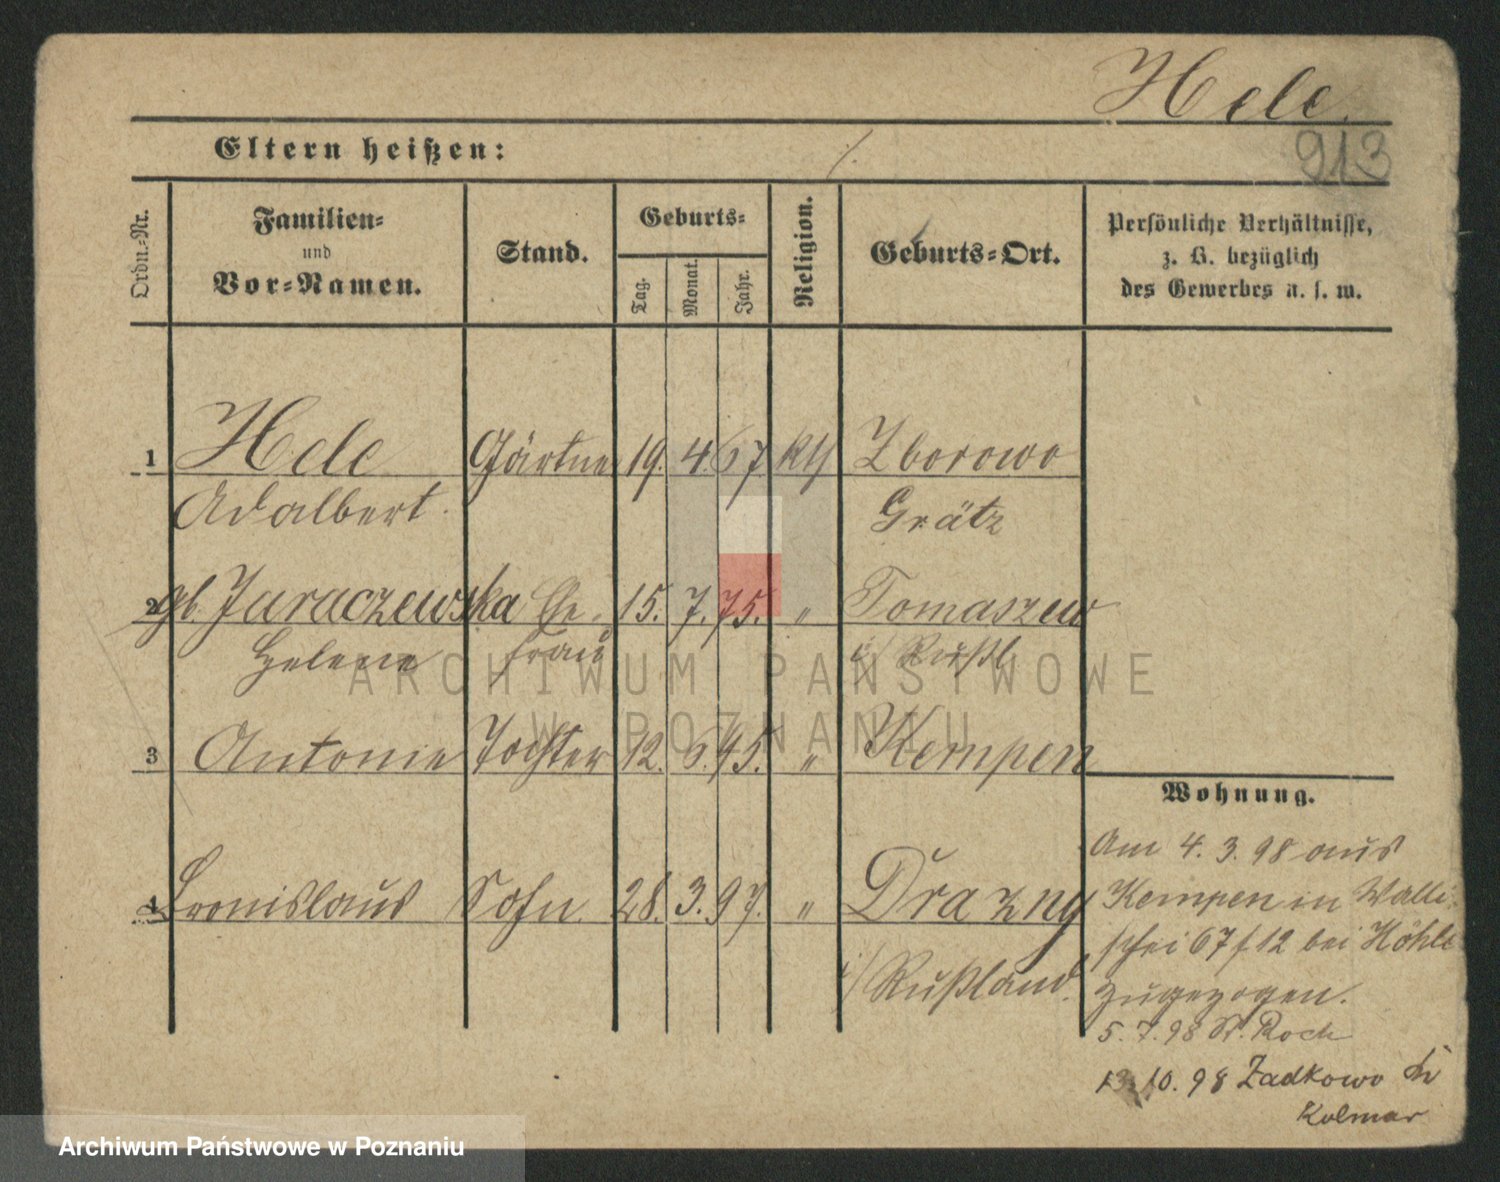 Hele.
Eltern heißen:
913
Ordn.-Nr.
Familien-
und
Vor-Namen.
Stand.
Geburts-
Tag.
Monat.
Jahr.
Religion.
Geburts-Ort.
Persönliche Verhältnisse,
z. B. bezüglich
des Gewerbes u. s. w.
1 Hele Gärtner 19. 4. 67 kth Zborowo
Adalbert. Grätz
2 gb. Jaraczewska Ehe- 15. 7. 75. " Tomaszew
Helene frau i/ Rußl
ARCHIWUM PAŃSTWOWE
W POZNANIU
3 Antonie Tochter 12. 6. 95. " Kempen
Wohnung.
4 Bronislaus Sohn 28. 3. 97. " Drazny
i/ Rußland.
Am 4. 3. 98 aus
Kempen in Walli-
schei 67 f. 12 bei Höhle
zugezogen.
5. 7. 98 St. Roch
13. 10. 98 Zadkowo Kr
Kolmar
Archiwum Państwowe w Poznaniu